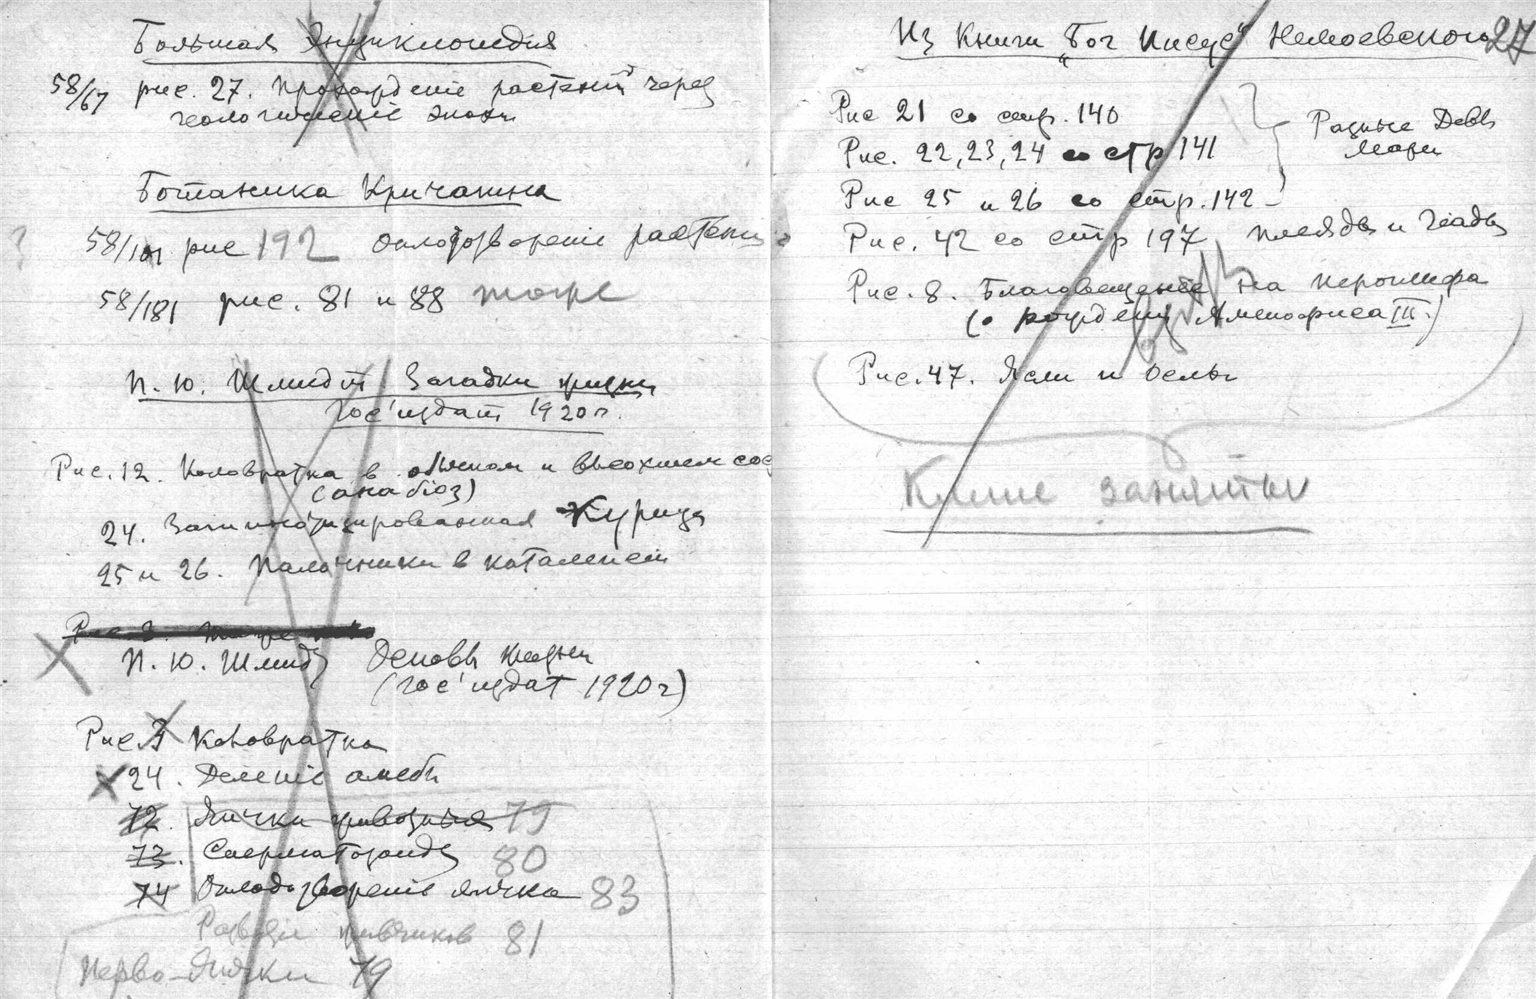 Большая Энциклопедия
58/67 рис. 27. Прохожденiе растенiй через
геологическiе эпохи
Ботаника Кричагина
? 58/101 рис 192 Оплодотворенiе растенiй
58/181 рис. 81 и 88 тоже
П. Ю. Шмидт Загадки жизни
Гос'издат 1920 г.
Рис. 12. Коловратка в обычном и высохшем сос
(анабiоз)
24. Загипнотизированная Курица
25 и 26. Палочники в каталепсiи
Рис. 3.
П. Ю. Шмидт Основы жизни
(Гос'издат 1920 г)
Рис. 3 Коловратка
24. Деленiе амебы
72. Яички животныя 79
73. Сперматозоиды 80
74 Оплодотворенiе яичка 83
живчиков 81
Перво-Яички 79
27
Из Книги "Бог Иисус" Немоевского
Рис 21 со стр. 140
Рис. 22, 23, 24 со стр 141
Рис 25 и 26 со стр. 142
Разные Девы
Марiи
Рис. 42 со стр 197 Плеяды и Гiады
Рис. 8. Благовещенiе на иероглифа
(о рожденiи Аменофиса III.)
Рис. 47. Ясли и Ослы
Клише заняты